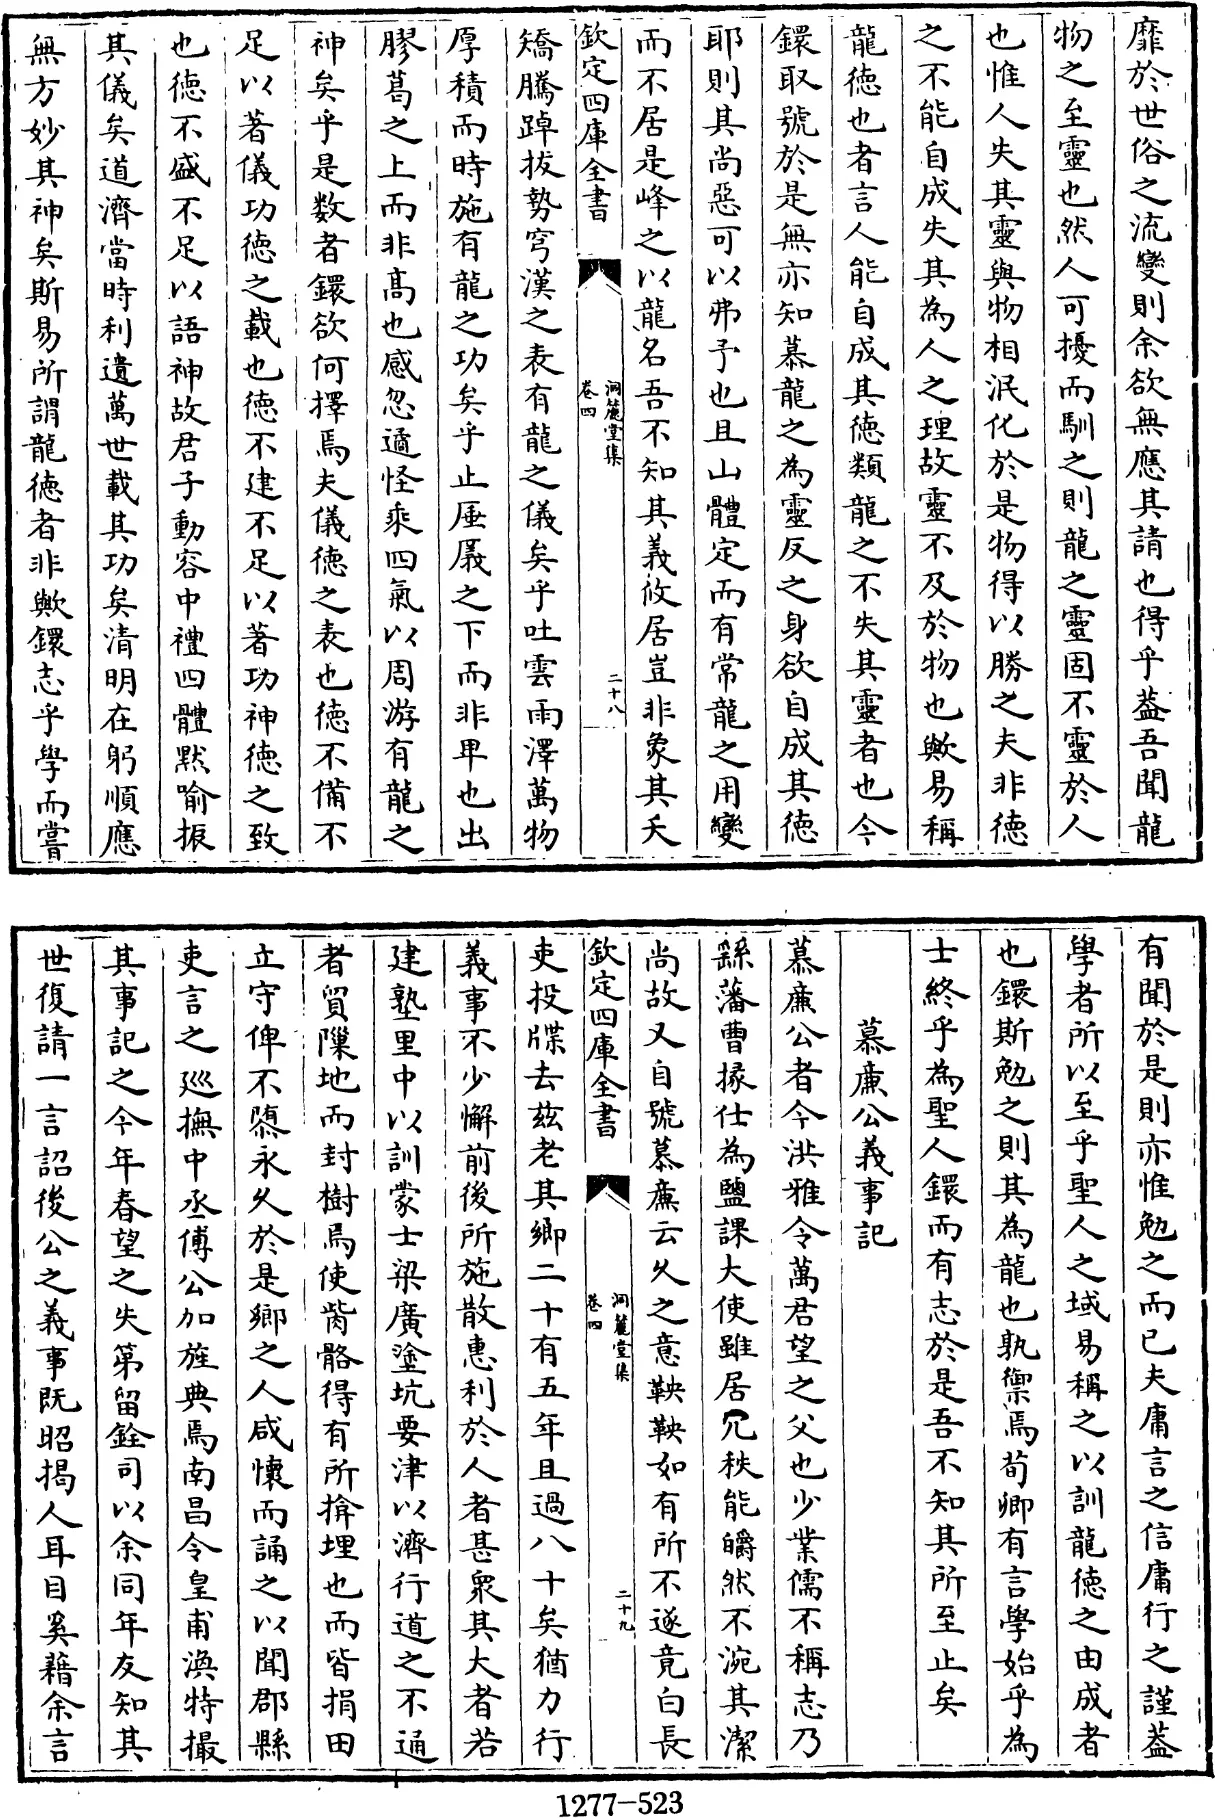 靡於世俗之流變則余欲無應其請也得乎葢吾聞龍
物之至靈也然人可擾而馴之則龍之靈固不靈於人
也惟人失其靈與物相泯化於是物得以勝之夫非德
之不能自成失其為人之理故靈不及於物也歟易稱
龍徳也者言人能自成其徳類龍之不失其靈者也今
鐶取號於是無亦知慕龍之為靈反之身欲自成其徳
耶則其尚惡可以弗予也且山體定而有常龍之用變
而不居是峰之以龍名吾不知其義攸居豈非象其夭
欽定四庫全書
洞麓堂集
卷四
二十八
矯騰踔拔勢穹漢之表有龍之儀矣乎吐雲雨澤萬物
厚積而時施有龍之功矣乎止厜㕒之下而非卑也出
膠葛之上而非髙也感忽遹怪乘四氣以周游有龍之
神矣乎是数者鐶欲何擇焉夫儀徳之表也徳不備不
足以著儀功徳之載也徳不建不足以著功神徳之致
也徳不盛不足以語神故君子動容中禮四體黙喻振
其儀矣道濟當時利遺萬世載其功矣清明在躬順應
無方妙其神矣斯易所謂龍徳者非歟鐶志乎學而嘗
有聞於是則亦惟勉之而已夫庸言之信庸行之謹葢
學者所以至乎聖人之域易稱之以訓龍徳之由成者
也鐶斯勉之則其為龍也孰禦焉荀卿有言學始乎為
士終乎為聖人鐶而有志於是吾不知其所至止矣
慕亷公義事記
慕亷公者今洪雅令萬君望之父也少業儒不稱志乃
繇藩曹掾仕為鹽課大使雖居冗秩能皭然不涴其潔
尚故又自號慕亷云久之意鞅鞅如有所不遂竟白長
欽定四庫全書
洞麓堂集
卷四
二十九
吏投牒去兹老其鄉二十有五年且過八十矣猶力行
義事不少懈前後所施散惠利於人者甚衆其大者若
建塾里中以訓蒙士梁廣塗坑要津以濟行道之不通
者貿隟地而封樹焉使胔骼得有所揜埋也而皆捐田
立守俾不隳永久於是鄉之人咸懷而誦之以聞郡縣
吏言之巡撫中丞傅公加旌典焉南昌令皇甫渙特撮
其事記之今年春望之失第留銓司以余同年友知其
世復請一言詔後公之義事既昭揭人耳目奚藉余言
1277-523